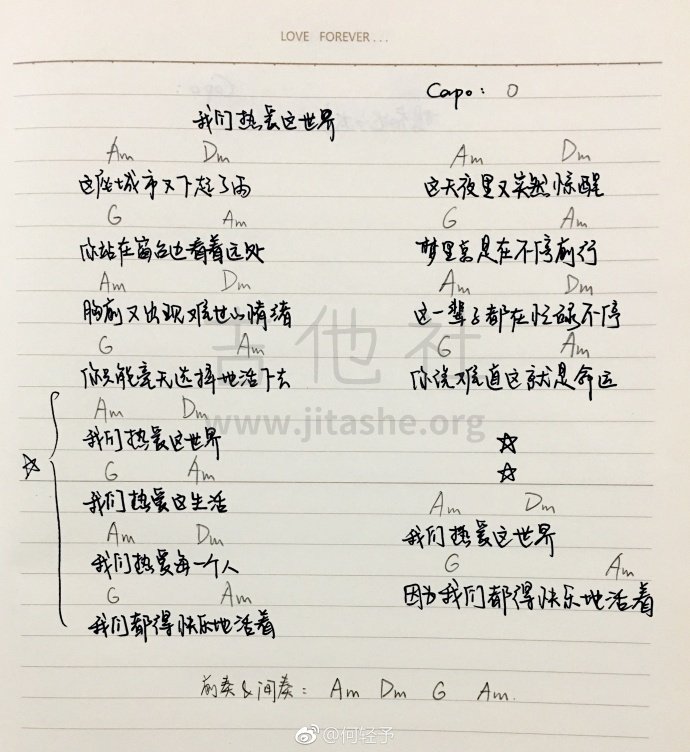 LOVE FOREVER...
Capo: 0
我们热爱这世界
Am Dm
这座城市又下起了雨
G Am
你站在窗台边看着远处
Am Dm
胸前又出现难过的情绪
G Am
你只能毫无选择地活下去
Am Dm
我们热爱这世界
☆
G Am
我们热爱这生活
Am Dm
我们热爱每一个人
G Am
我们都得快乐地活着
Am Dm
这天夜里又突然惊醒
G Am
梦里总是在不停前行
Am Dm
这一辈子都在忙碌不停
G Am
你说难道这就是命运
☆
☆
Am Dm
我们热爱这世界
G Am
因为我们都得快乐地活着
前奏&间奏: Am Dm G Am.
吉他社
www.jitashe.org
@何轻予